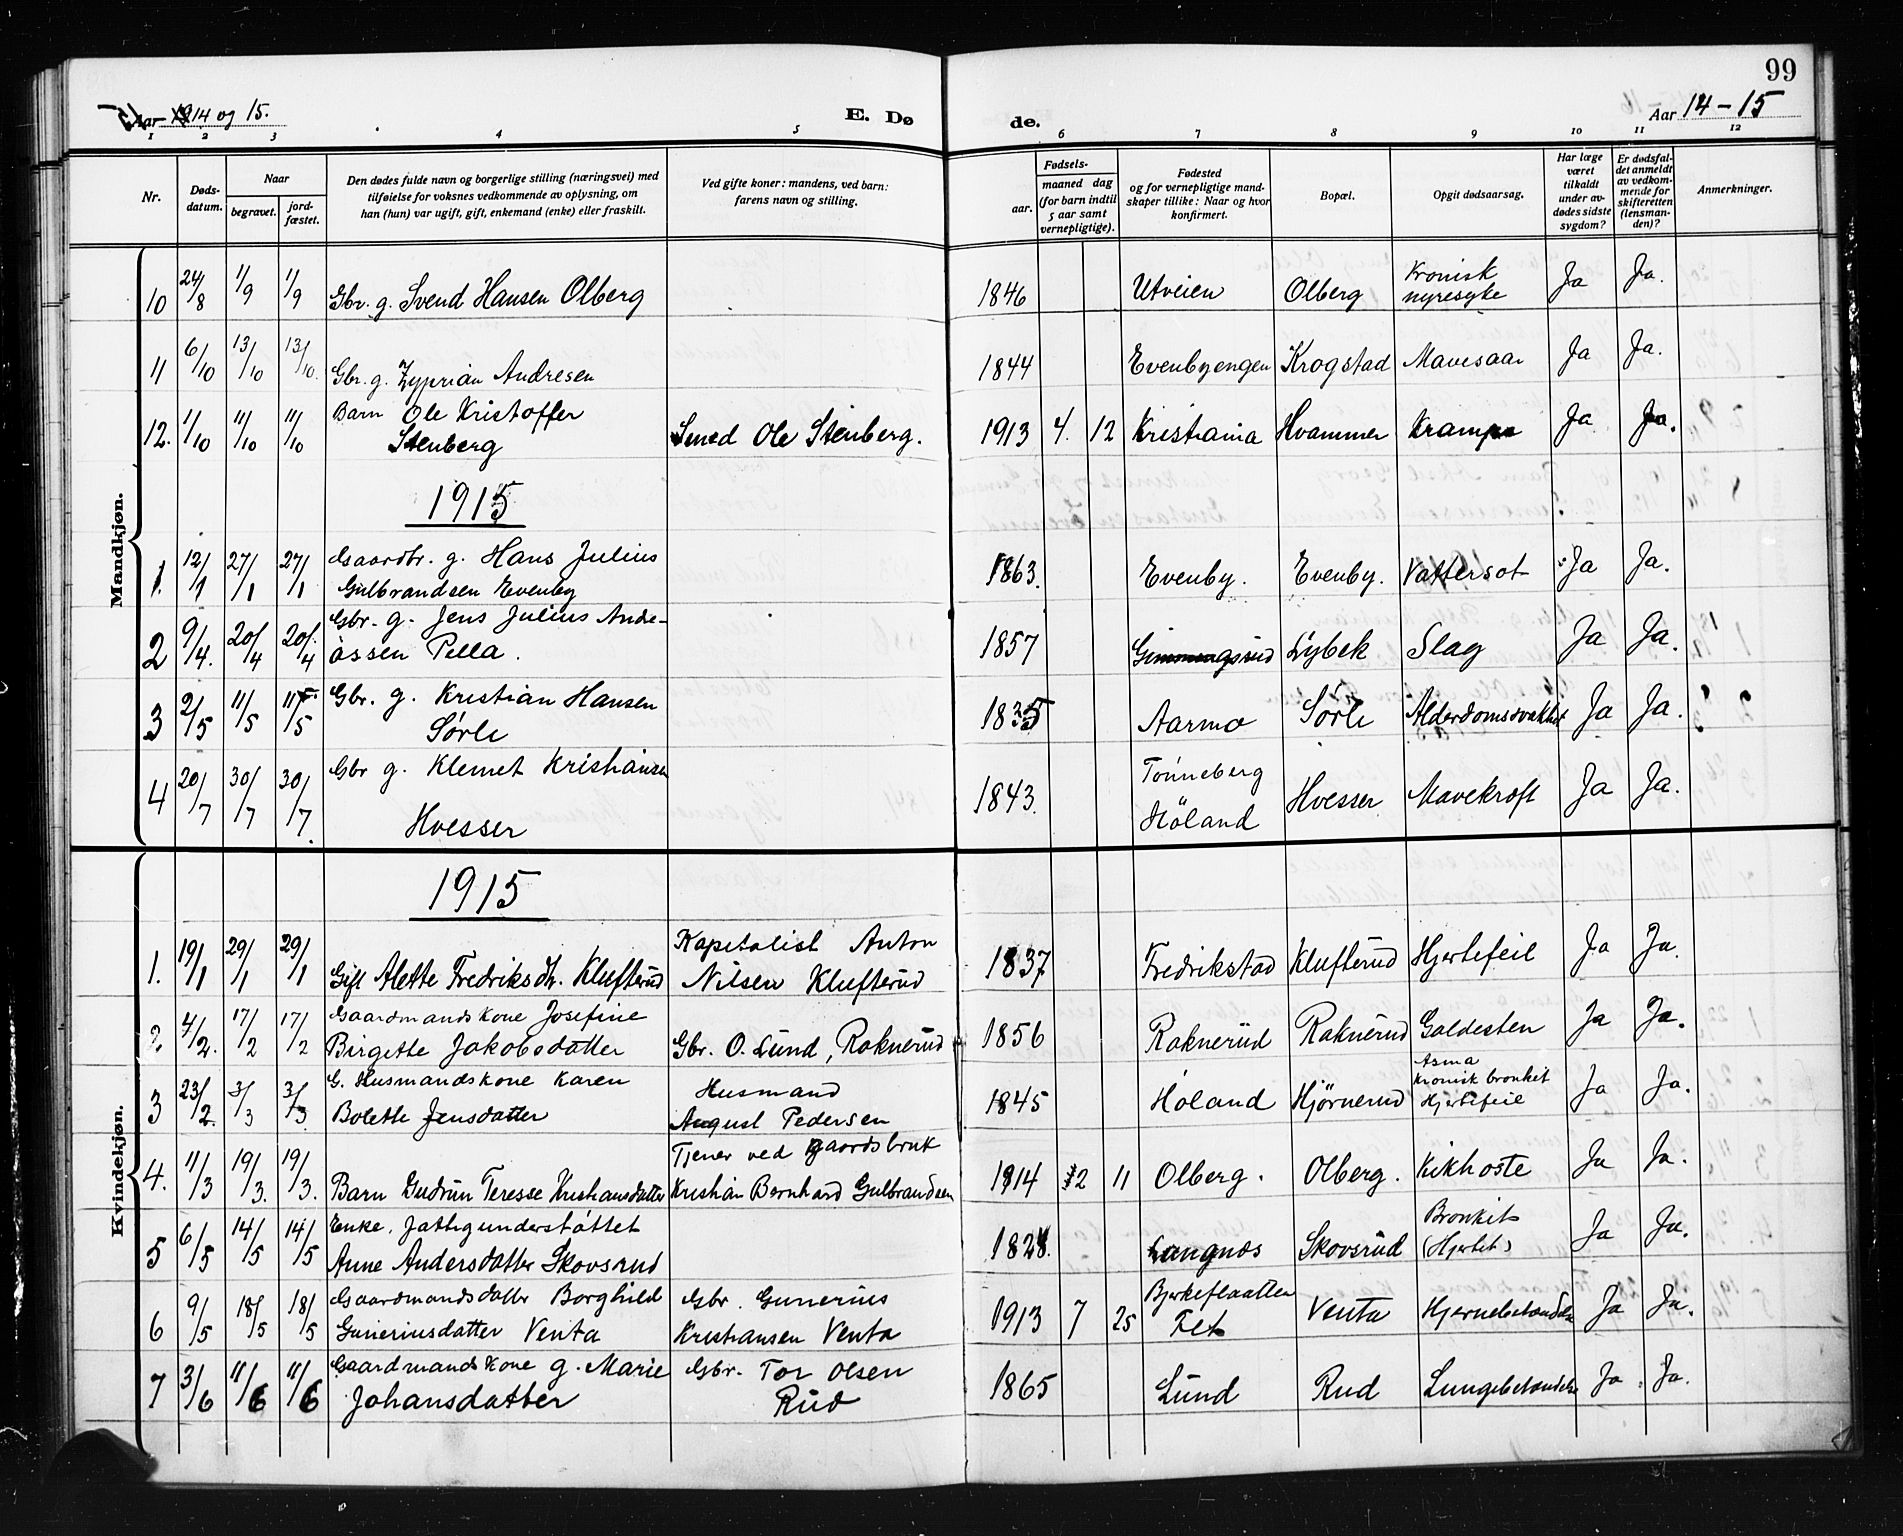 99
Aar 1914 og 15.
E. Dø
de.
Aar 14-15
1 2 3 4 5 6 7 8 9 10 11 12
Nr. Døds-datum. Naar begravet. jord-fæstet. Den dødes fulde navn og borgerlige stilling (næringsvei) med tilføielse for voksnes vedkommende av oplysning, om han (hun) var ugift, gift, enkemand (enke) eller fraskilt. Ved gifte koner: mandens, ved barn: farens navn og stilling. Fødsels- aar. maaned dag (for barn indtil 5 aar samt vernepligtige). Fødested og for vernepligtige mandskaper tillike: Naar og hvor konfirmert. Bopæl. Opgit dødsaarsag. Har læge været tilkaldt under avdødes sidste sygdom? Er dødsfaldet anmeldt av vedkommende for skifteretten (lensmanden)? Anmerkninger.
Mandkjøn.
10 24/8 1/9 1/9 Gbr. g. Svend Hansen Olberg 1846 Utveien Olberg Kronisk nyresyke Ja Ja.
11 6/10 13/10 13/10. Gbr. g. Zyprian Andresen 1844 Evenbyengen Krogstad Mavesaar Ja Ja.
12. 1/10 11/10 11/10 Barn Ole Kristoffer Stenberg Smed Ole Stenberg. 1913 4. 12 Kristiania Hvammer Krampe Ja Ja.
1915
1. 12/1 27/1 27/1 Gaardbr. g. Hans Julius Gulbrandsen Evenby 1863. Evenby. Evenby. Vattersot Ja Ja.
2 9/4. 20/4 20/4 Gbr. g. Jens Julius Andreassen Pella. 1857 Lybek Slag Ja Ja.
3 2/5 11/5 11/5 Gbr. g. Kristian Hansen Sørli 1835 Aarmo Sørli Alderdomssvakhet Ja Ja.
4 20/7 30/7 30/7. Gbr g. Klemet Kristiansen Hvesser 1843. Tønneberg Höland Hvesser Mavekræft Ja Ja.
Kvindekjøn.
1915
1. 19/1 29/1 29/1 Gift Alette Fredriksdtr. Klufterud Kapitalist Anton Nilsen Klufterud 1837 Fredrikstad Klufterud Hjertefeil Ja Ja.
2. 4/2. 17/2 17/2 Gaardmandskone Josefine Birgette Jakobsdatter Gbr. O. Lund, Raknerud 1856 Raknerud Raknerud Galdesten Ja Ja.
3 23/2. 3/3 3/3 G. Husmandskone Karen Bolette Jensdatter Husmand August Pedersen 1845 Høland Hjørnerud Asma Kronisk bronkit Hjertefeil Ja Ja.
4. 11/3 19/3. 19/3. Barn Gudrun Teresse Kristiansdatter Tjener ved gaardsbruk Kristian Bernhard Gulbrandsen 1914 12 11 Olberg. Olberg. Kikhoste Ja Ja.
5 6/5 14/5 14/5 Enke, fattigunderstøttet Anne Andersdatter Skovsrud 1828. Langnes Skovsrud Bronkit (Hjertet) Ja Ja.
6 9/5 18/5 18/5 Gaardmandsdatter Borghild Guneriusdatter Venta Gbr. Gunerius Kristiansen Venta 1913 7 25 Bjerkeflaatten Fet Venta Hjernebetændelse Ja Ja.
7 3/6 11/6 11/6 Gaardmandskone g. Marie Johansdatter Gbr. Tor Olsen Rud 1865 Lund Rud Lungebetændelse Ja. Ja.